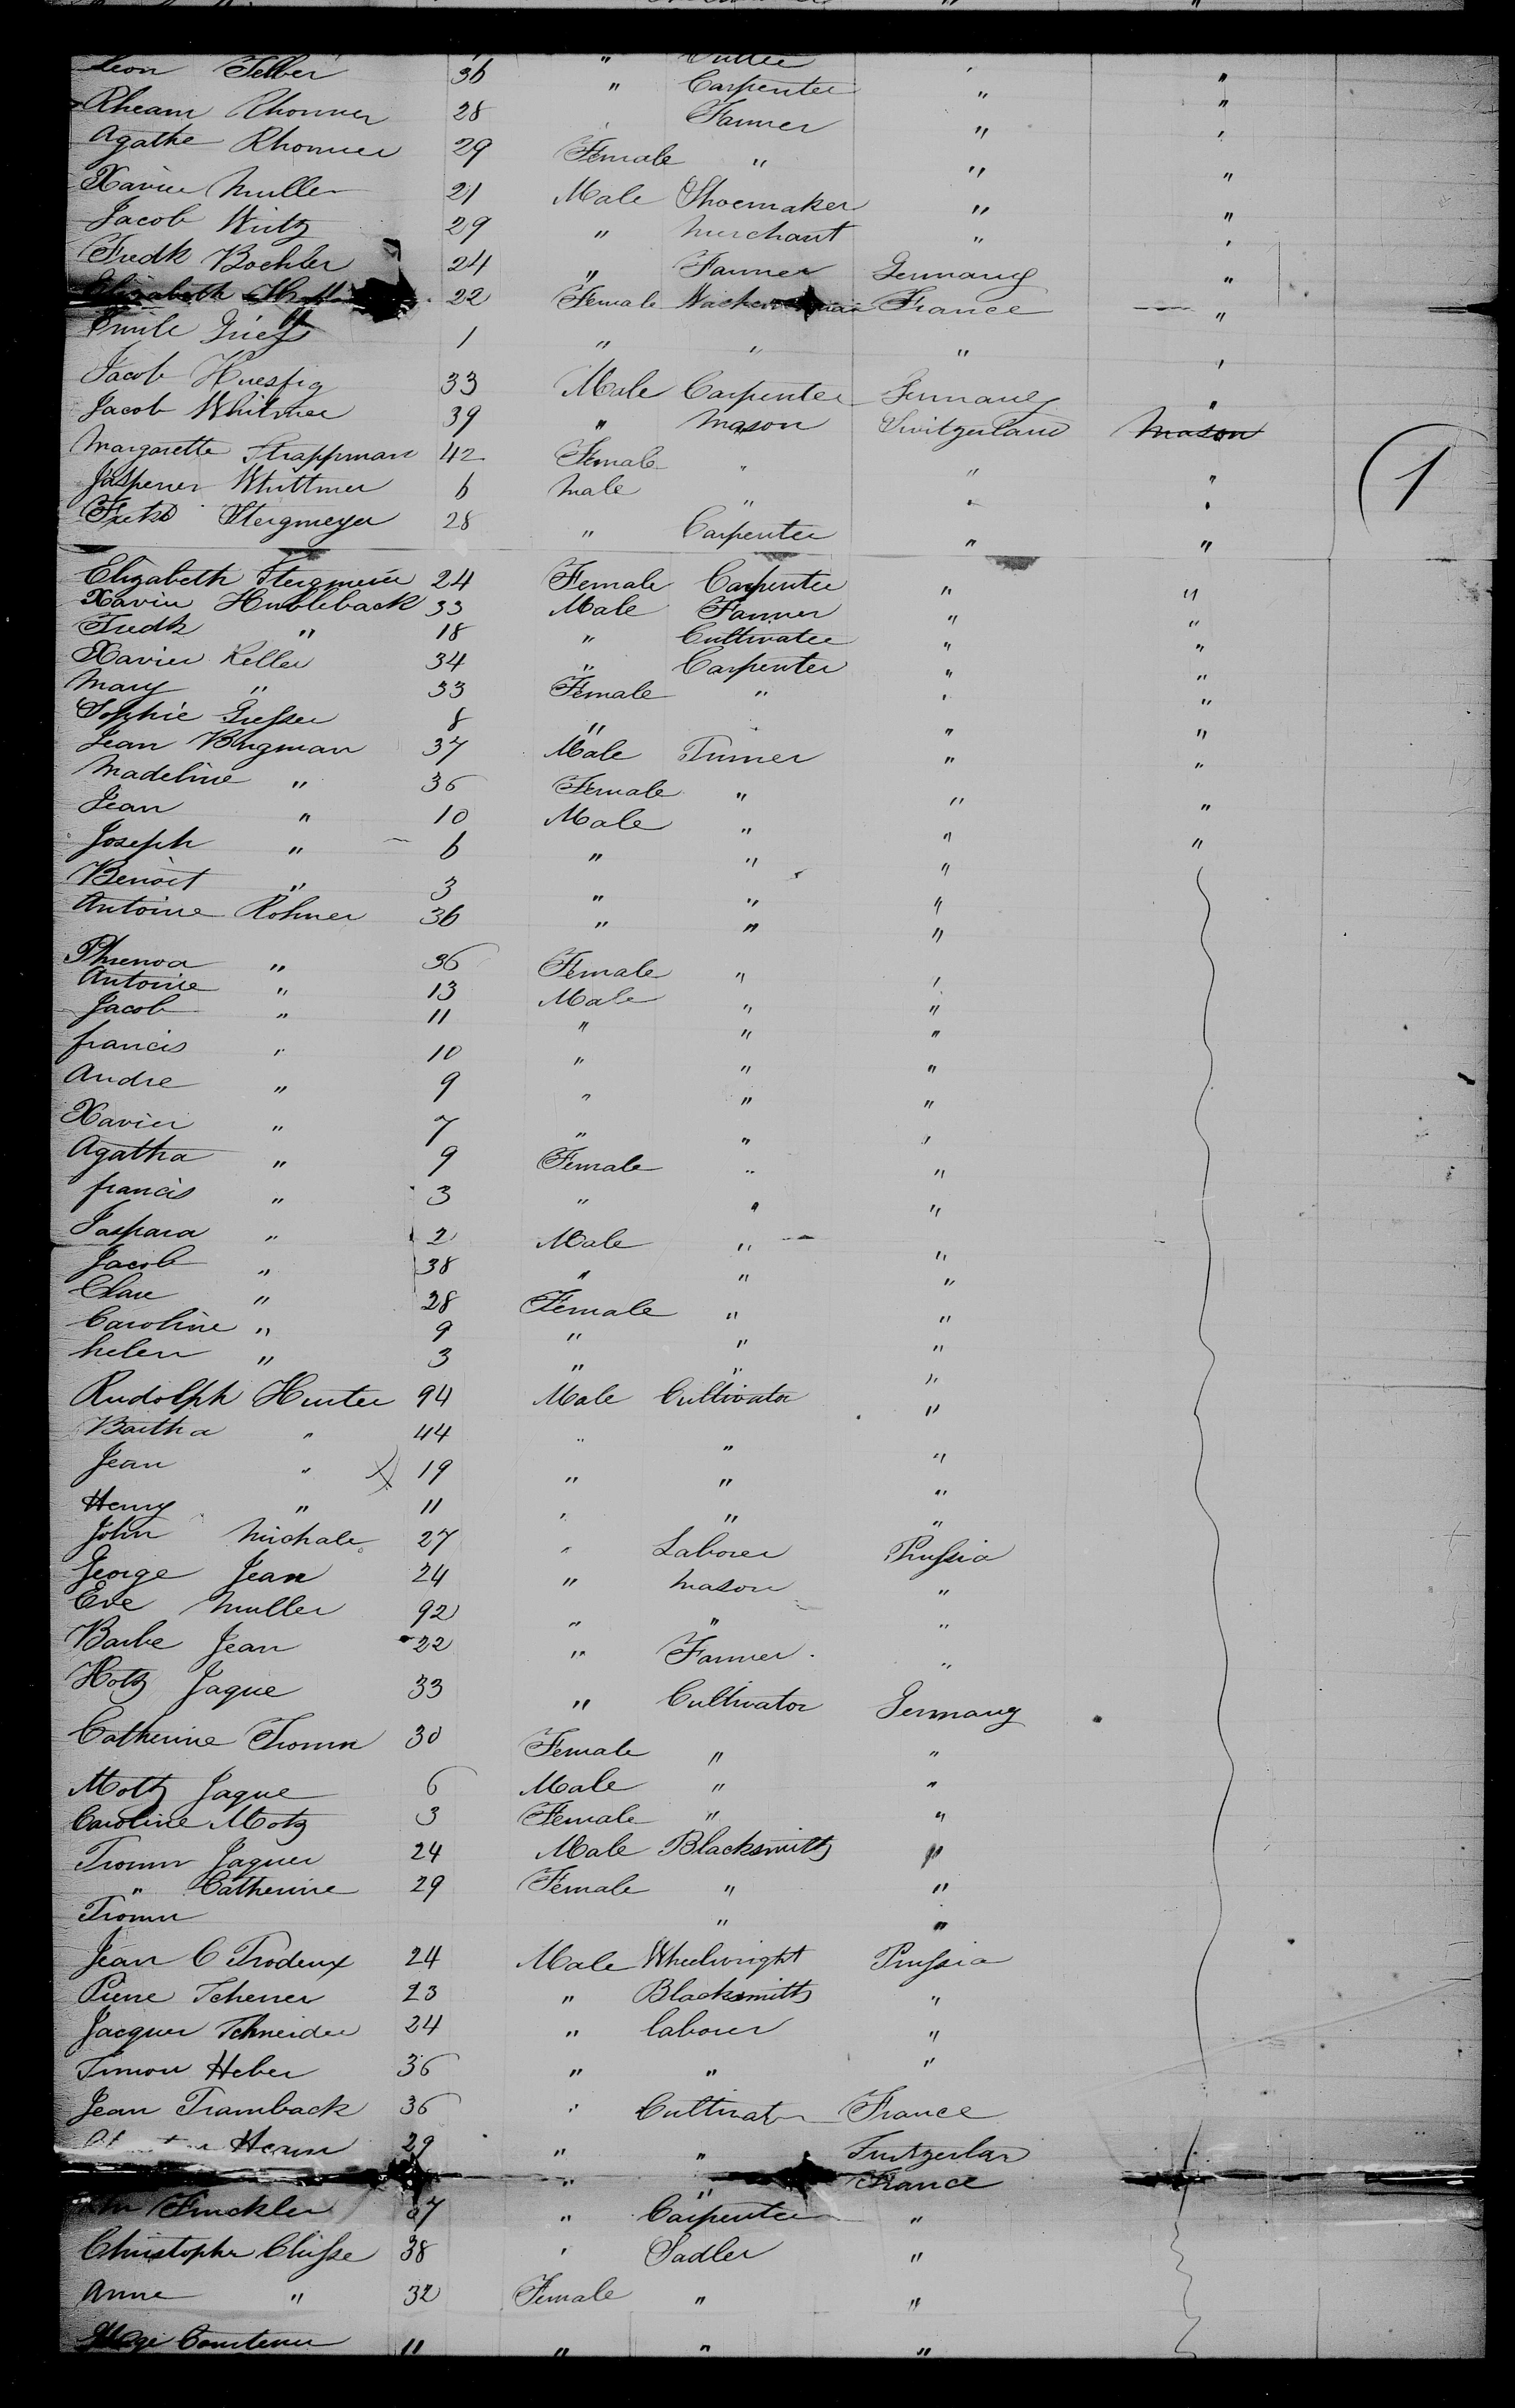 Leon Felber 36 " Carpenter " "
Rheam Rhomer 28 Farmer " "
Agathe Rhomer 29 Female " " "
Xavier Muller 21 Male Shoemaker " "
Jacob Wirtz 29 " Merchant " "
Fredk Boehler 24 " Farmer Germany "
Elizabeth 22 Female France "
Emile Grief 1 " " " "
Jacob Huesfig 33 Male Carpenter Germany "
Jacob Whitmer 39 " Mason Switzerland Mason
1
Margarette Strappman 42 Female " " "
Whittmer 6 Male " " "
Stegmeyer 28 " Carpenter " "
Elizabeth Stegmeier 24 Female Carpenter " "
Xavier Hubleback 33 Male Farmer " "
Fredk " 18 " Cultivater " "
Xavier Keller 34 " Carpenter " "
Mary " 33 Female " " "
Sophie Gresser 8 " " " "
Jean Brigman 37 Male Turner " "
Madeline " 36 Female " " "
Jean " 10 Male " " "
Joseph " 6 " " " "
Benoit " 3 " " "
Antoine Rohner 36 " " "
" 36 Female " "
Antoine " 13 Male " "
Jacob " 11 " " "
francis " 10 " " "
Andre " 9 " " "
Xavier " 7 " " "
Agatha " 9 Female " "
francis " 3 " " "
Jaspara " 2 Male " "
Jacob " 38 " " "
Clare " 28 Female " "
Caroline " 9 " " "
helen " 3 " " "
Rudolph Hunter 94 Male Cultivator "
Bartha " 44 " " "
Jean " 19 " " "
Henry " 11 " " "
John Michale 27 " Laborer Prussia
George Jean 24 " Mason "
Eve Muller 92 " " "
Barbe Jean 22 " Farmer "
Hotz Jaque 33 " Cultivator Germany
Catherine Tromm 30 Female " "
Motz Jaque 6 Male " "
Caroline Motz 3 Female " "
Tromm Jaques 24 Male Blacksmith "
" Catherine 29 Female " "
Tromm " "
Jean C Trodeux 24 Male Wheelwright Prussia
Pierre Scherrer 23 " Blacksmith "
Jacques Schneider 24 " laborer "
Simon Heber 36 " " "
Jean Tramback 36 " Cultivator France
29 " " Switzerlan
" " France
Finckler 37 " Carpenter "
Christopher Clisse 38 " Sadler "
Anne " 32 Female " "
11 " " "